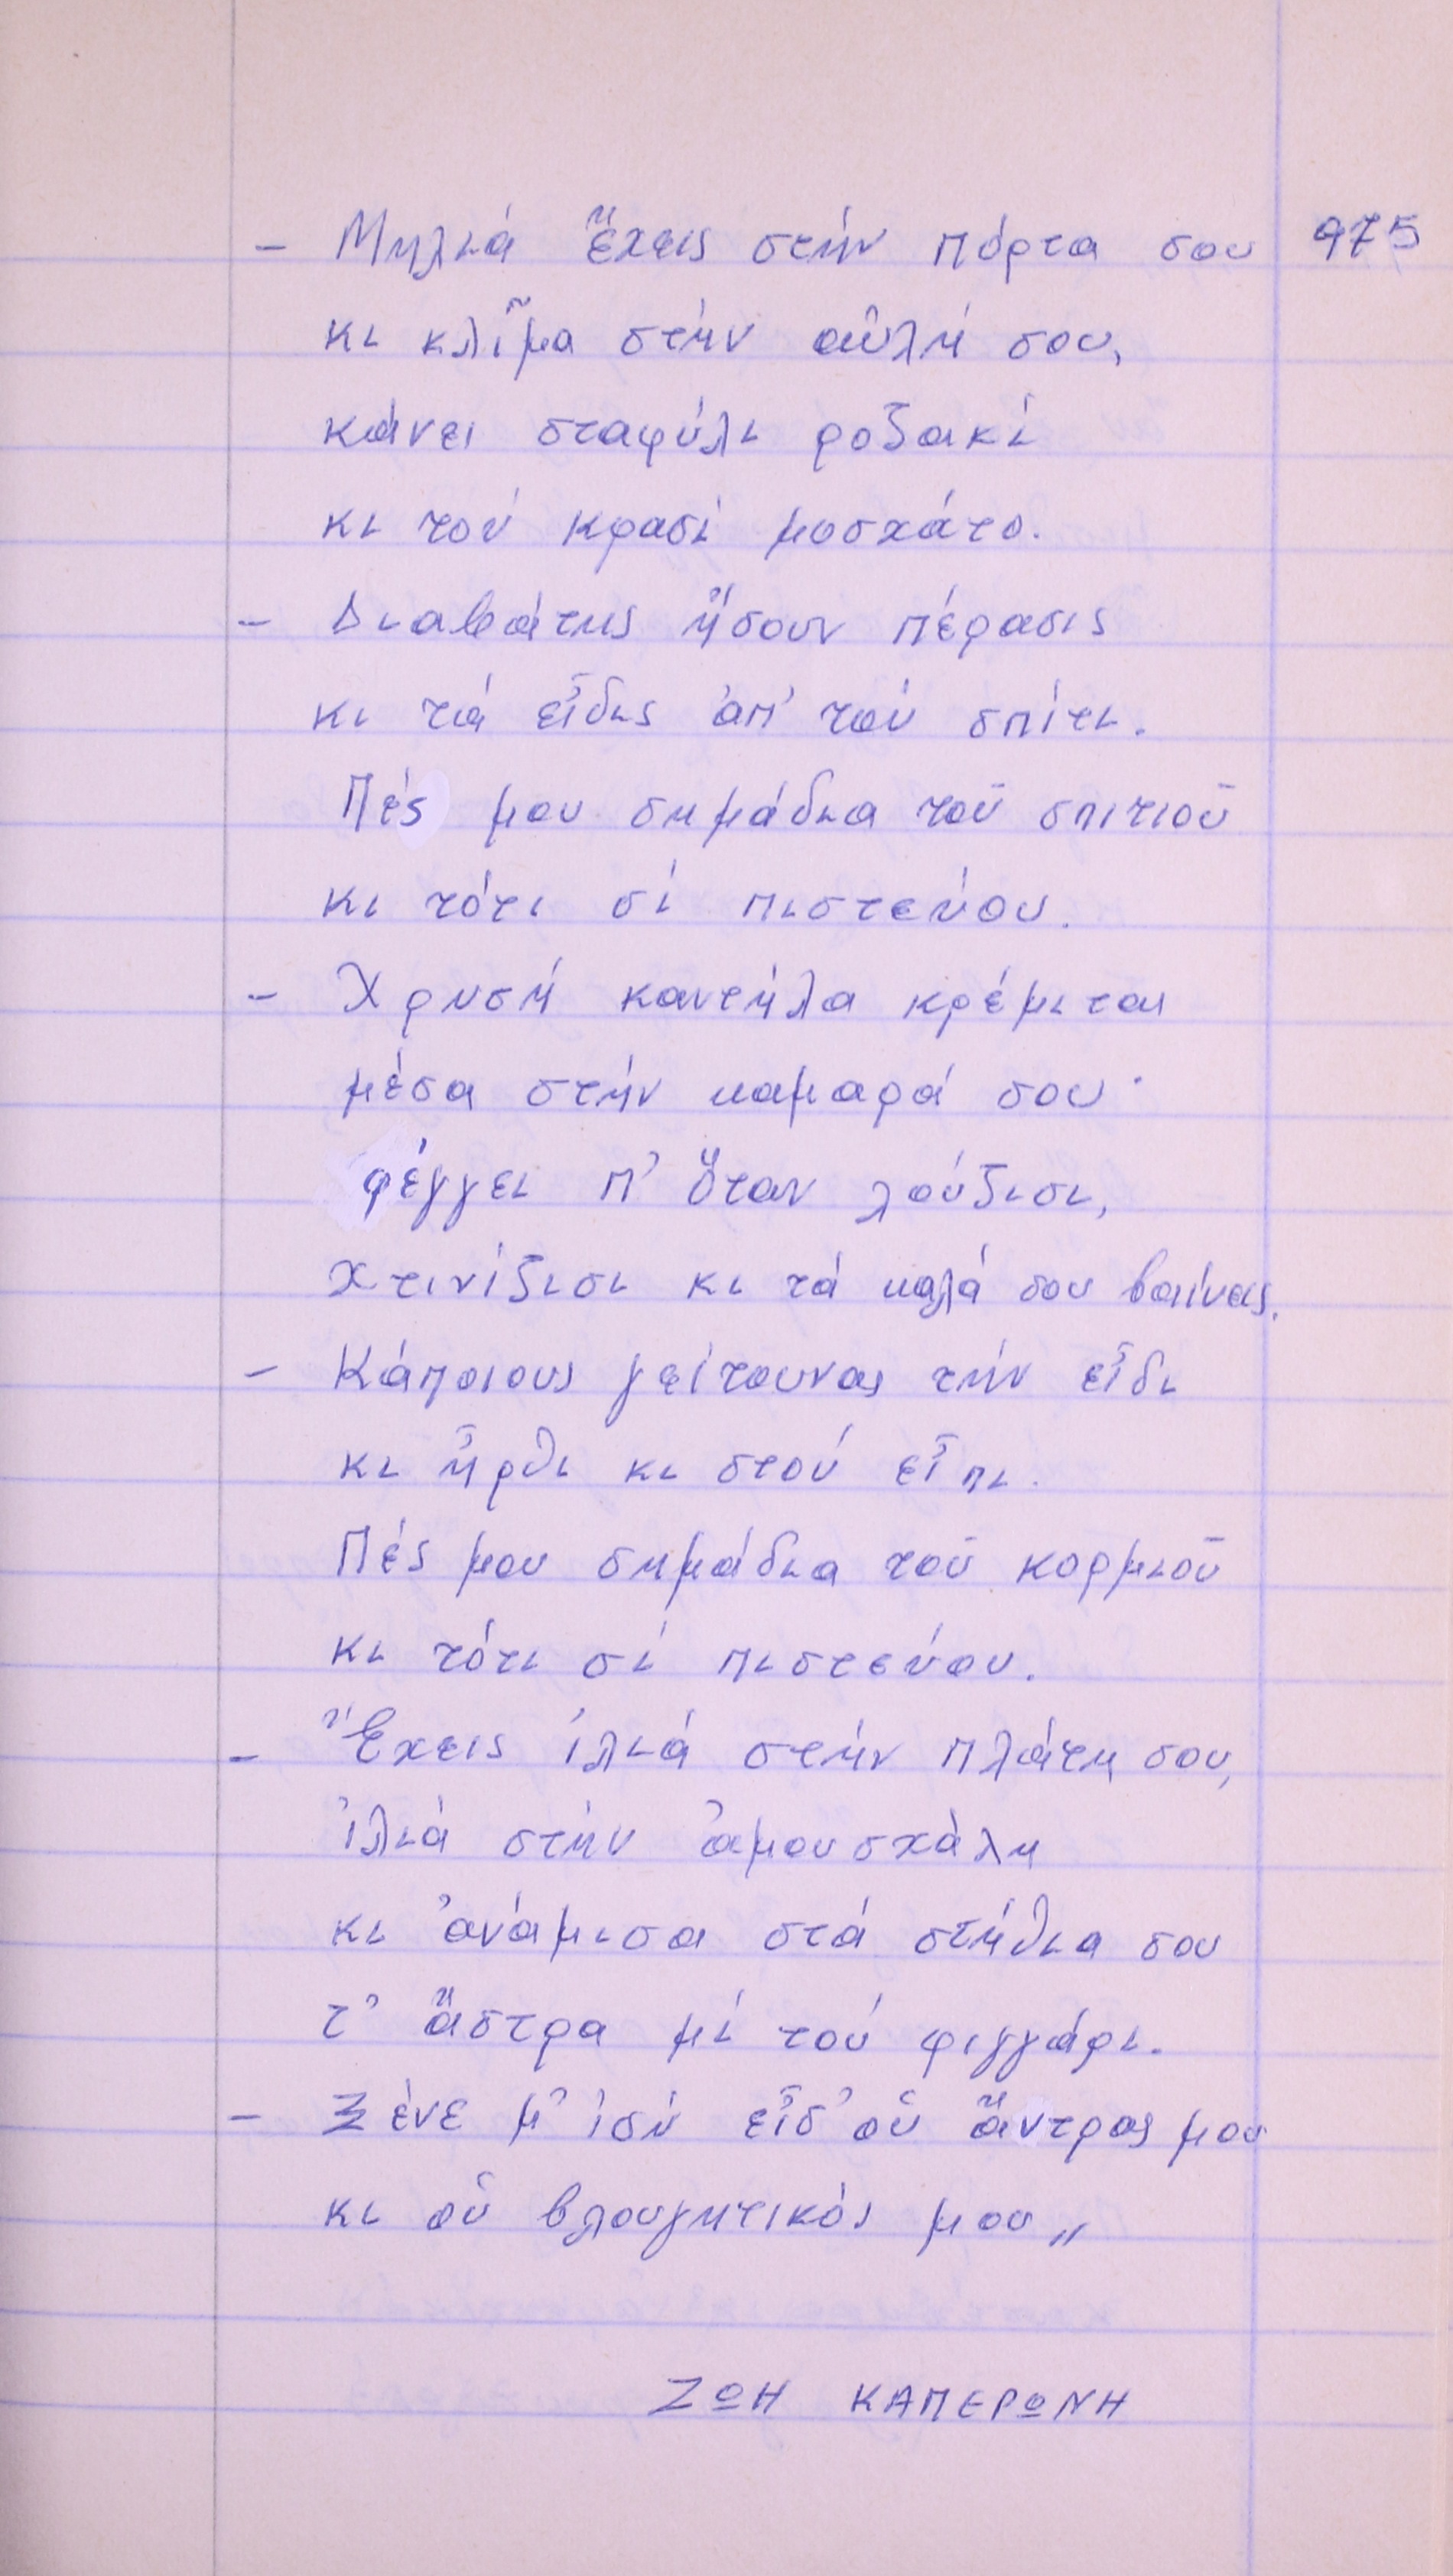 - Μηλιά ἔχεις στήν πόρτα σου 975
κι κλῖμα στήν αὐλή σου,
κάνει σταφύλι ροζακί
κι τού κρασί μοσχάτο.
- Διαβάτης ἤσουν πέρασις
κι τά εἶδις ἀπ' τού σπίτι.
Πές μου σημάδια τοῦ σπιτιοῦ
κι τότι σί πιστεύου.
- Χρυσή καντήλα κρέμιται
μέσα στήν καμαρά σου·
φέγγει π' ὅταν λούζισι,
χτινίζισι κι τά καλά σου βαίνεις.
- Κάποιους γείτουνας τήν εἶδι
κι ἦρθι κι στού εἶπι.
Πές μου σημάδια τοῦ κορμιοῦ
κι τότι σί πιστεύου.
- Ἔχεις ἰλιά στήν πλάτη σου,
ἰλιά στήν ἀμουσχάλη
κι ἀνάμισα στά στήθια σου
τ' ἄστρα μί τού φιγγάρι.
- Ξένε μ' ἰσύ εἶσ' οὑ ἄντρας μου
κι οὑ βλουγητικός μου"
ΖΩΗ ΚΑΠΕΡΩΝΗ